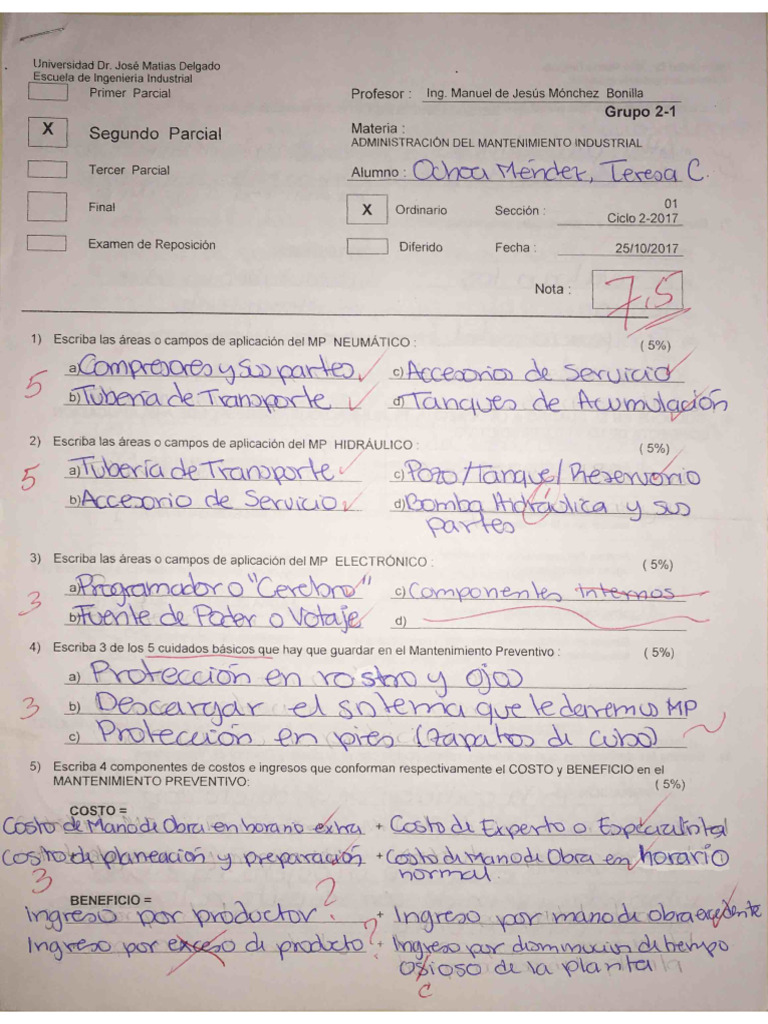 Universidad Dr. José Matias Delgado
Escuela de Ingenieria Industrial
Primer Parcial
Profesor : Ing. Manuel de Jesús Mónchez Bonilla
Grupo 2-1
X Segundo Parcial
Materia :
ADMINISTRACIÓN DEL MANTENIMIENTO INDUSTRIAL
Tercer Parcial
Alumno : Ochoa Méndez, Teresa C.
Final
X Ordinario Sección : 01
Ciclo 2-2017
Examen de Reposición
Diferido Fecha : 25/10/2017
Nota : 7,5
1) Escriba las áreas o campos de aplicación del MP NEUMÁTICO : ( 5%)
a) Compresores y sus partes c) Accesorios de Servicio
5
b) Tubería de Transporte d) Tanques de Acumulación
2) Escriba las áreas o campos de aplicación del MP HIDRÁULICO : ( 5%)
5
a) Tubería de Transporte c) Pozo/Tanque/Reservorio
b) Accesorio de Servicio d) Bomba Hidráulica y sus
partes
3) Escriba las áreas o campos de aplicación del MP ELECTRÓNICO : ( 5%)
a) Programador o "Cerebro" c) Componentes Internos
3
b) Fuente de Poder o Votaje d)
4) Escriba 3 de los 5 cuidados básicos que hay que guardar en el Mantenimiento Preventivo : ( 5%)
a) Protección en rostro y ojos
3
b) Descargar el sistema que le daremos MP
c) Protección en pies (zapatos de cubo)
5) Escriba 4 componentes de costos e ingresos que conforman respectivamente el COSTO y BENEFICIO en el
MANTENIMIENTO PREVENTIVO: ( 5%)
COSTO =
Costo de Mano de Obra en horario extra + Costo de Experto o Especialista
Costo de planeación y preparación + Costo de Mano de Obra en horario
normal
3
BENEFICIO =
Ingreso por productor ? + Ingreso por mano de obra excedente
Ingreso por exceso de producto ? + Ingreso por disminucion de tiempo
osioso de la planta
c